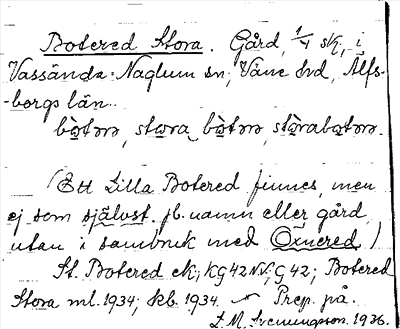 Botered Stora. Gård, 1/4 sk, i
Vassända-Naglum sn; Väne hd, Älfs-
-borgs län.
bo̤tərə, sto̤ra bo̤tərə, sto̤rabo̤tərə.
(Ett Lilla Botered finnes, men
ej som självst. jb. namn eller gård,
utan i sambruk med Öxnered.)
St. Botered ek; G 42; Botered
Stora ml. 1934; skb. 1934. Prep. på.
L. M. Svenungsson. 1936.